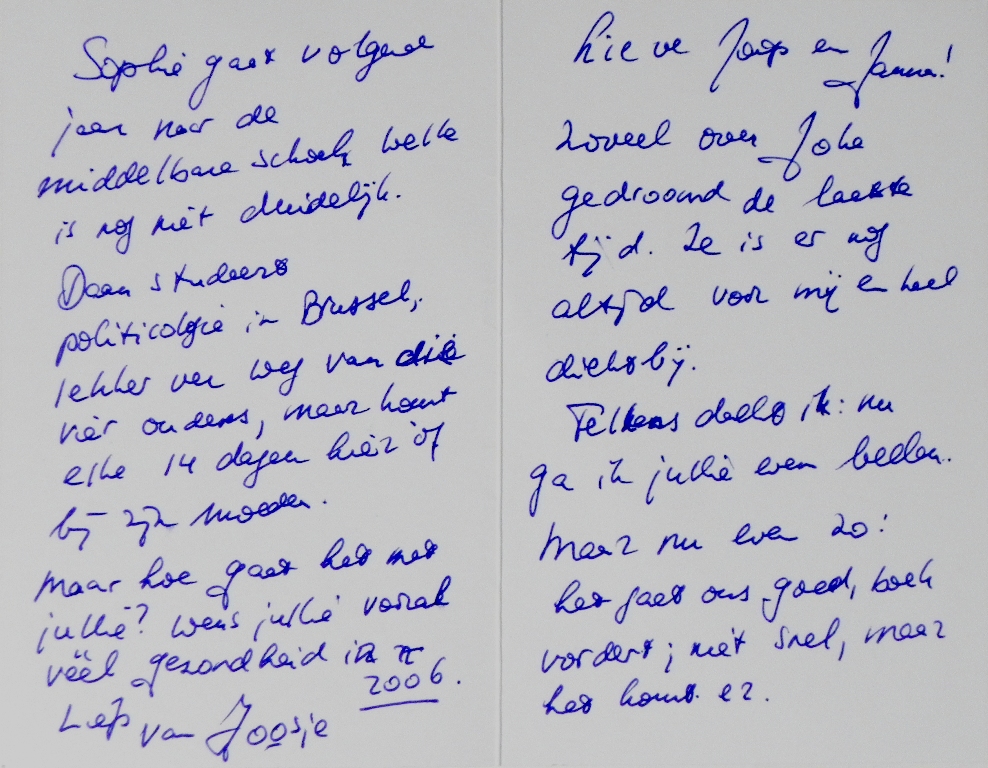 Lieve Jaap en Janna!
Zoveel over Joke
gedroomd de laatste
tijd. Ze is er nog
altijd voor mij en heel
dichtbij.
Telkens dacht ik: nu
ga ik jullie even bellen.
Maar nu even zo:
het gaat ons goed, boek
vordert; niet snel, maar
het komt er.
Sophie gaat volgend
jaar naar de
middelbare school, welke
is nog niet duidelijk.
Daan studeert
politicologie in Brussel,
lekker ver weg van die
vier ouders, maar komt
elke 14 dagen hier óf
bij zijn moeder.
Maar hoe gaat het met
jullie? Wens jullie vooral
véél gezondheid in
2006.
Liefs van Joosje